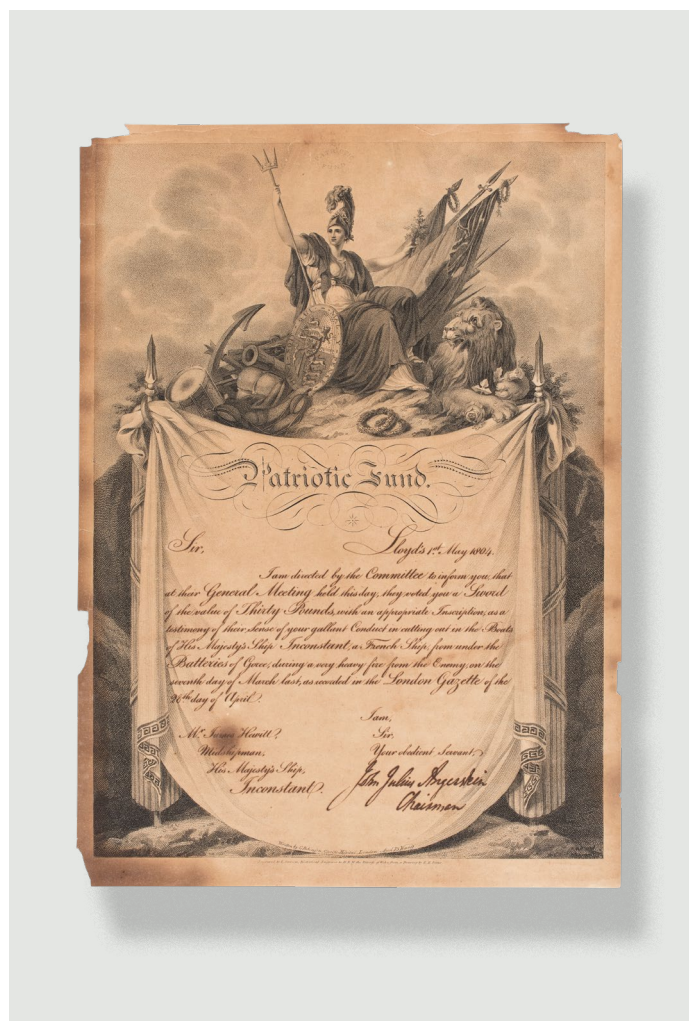 Patriotic Fund.
Sir, Lloyd's 1st May 1804.
I am directed by the Committee to inform you, that
at their General Meeting held this day, they voted you a Sword
of the value of Thirty Pounds, with an appropriate Inscription, as a
testimony of their sense of your gallant Conduct in cutting out in the Boats
of His Majesty's Ship Inconstant, a French Ship, from under the
Batteries of Goree, during a very heavy fire from the Enemy, on the
seventh day of March last, as recorded in the London Gazette of the
26th day of April.
I am,
Sir,
Your obedient Servant,
Mr. Hewitt
Midshipman,
His Majesty's Ship,
Inconstant.
John Julius Angerstein
Chairman